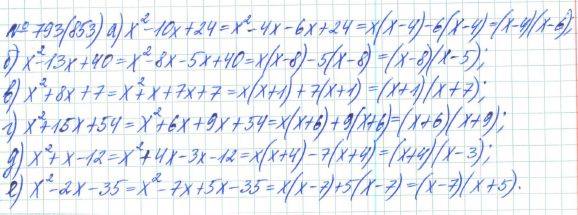 № 793(853) а) x²-10x+24=x²-4x-6x+24=x(x-4)-6(x-4)=(x-4)(x-6);
б) x²-13x+40=x²-8x-5x+40=x(x-8)-5(x-8)=(x-8)(x-5);
в) x²+8x+7=x²+x+7x+7=x(x+1)+7(x+1)=(x+1)(x+7);
г) x²+15x+54=x²+6x+9x+54=x(x+6)+9(x+6)=(x+6)(x+9);
д) x²+x-12=x²+4x-3x-12=x(x+4)-7(x+4)=(x+4)(x-3);
е) x²-2x-35=x²-7x+5x-35=x(x-7)+5(x-7)=(x-7)(x+5).